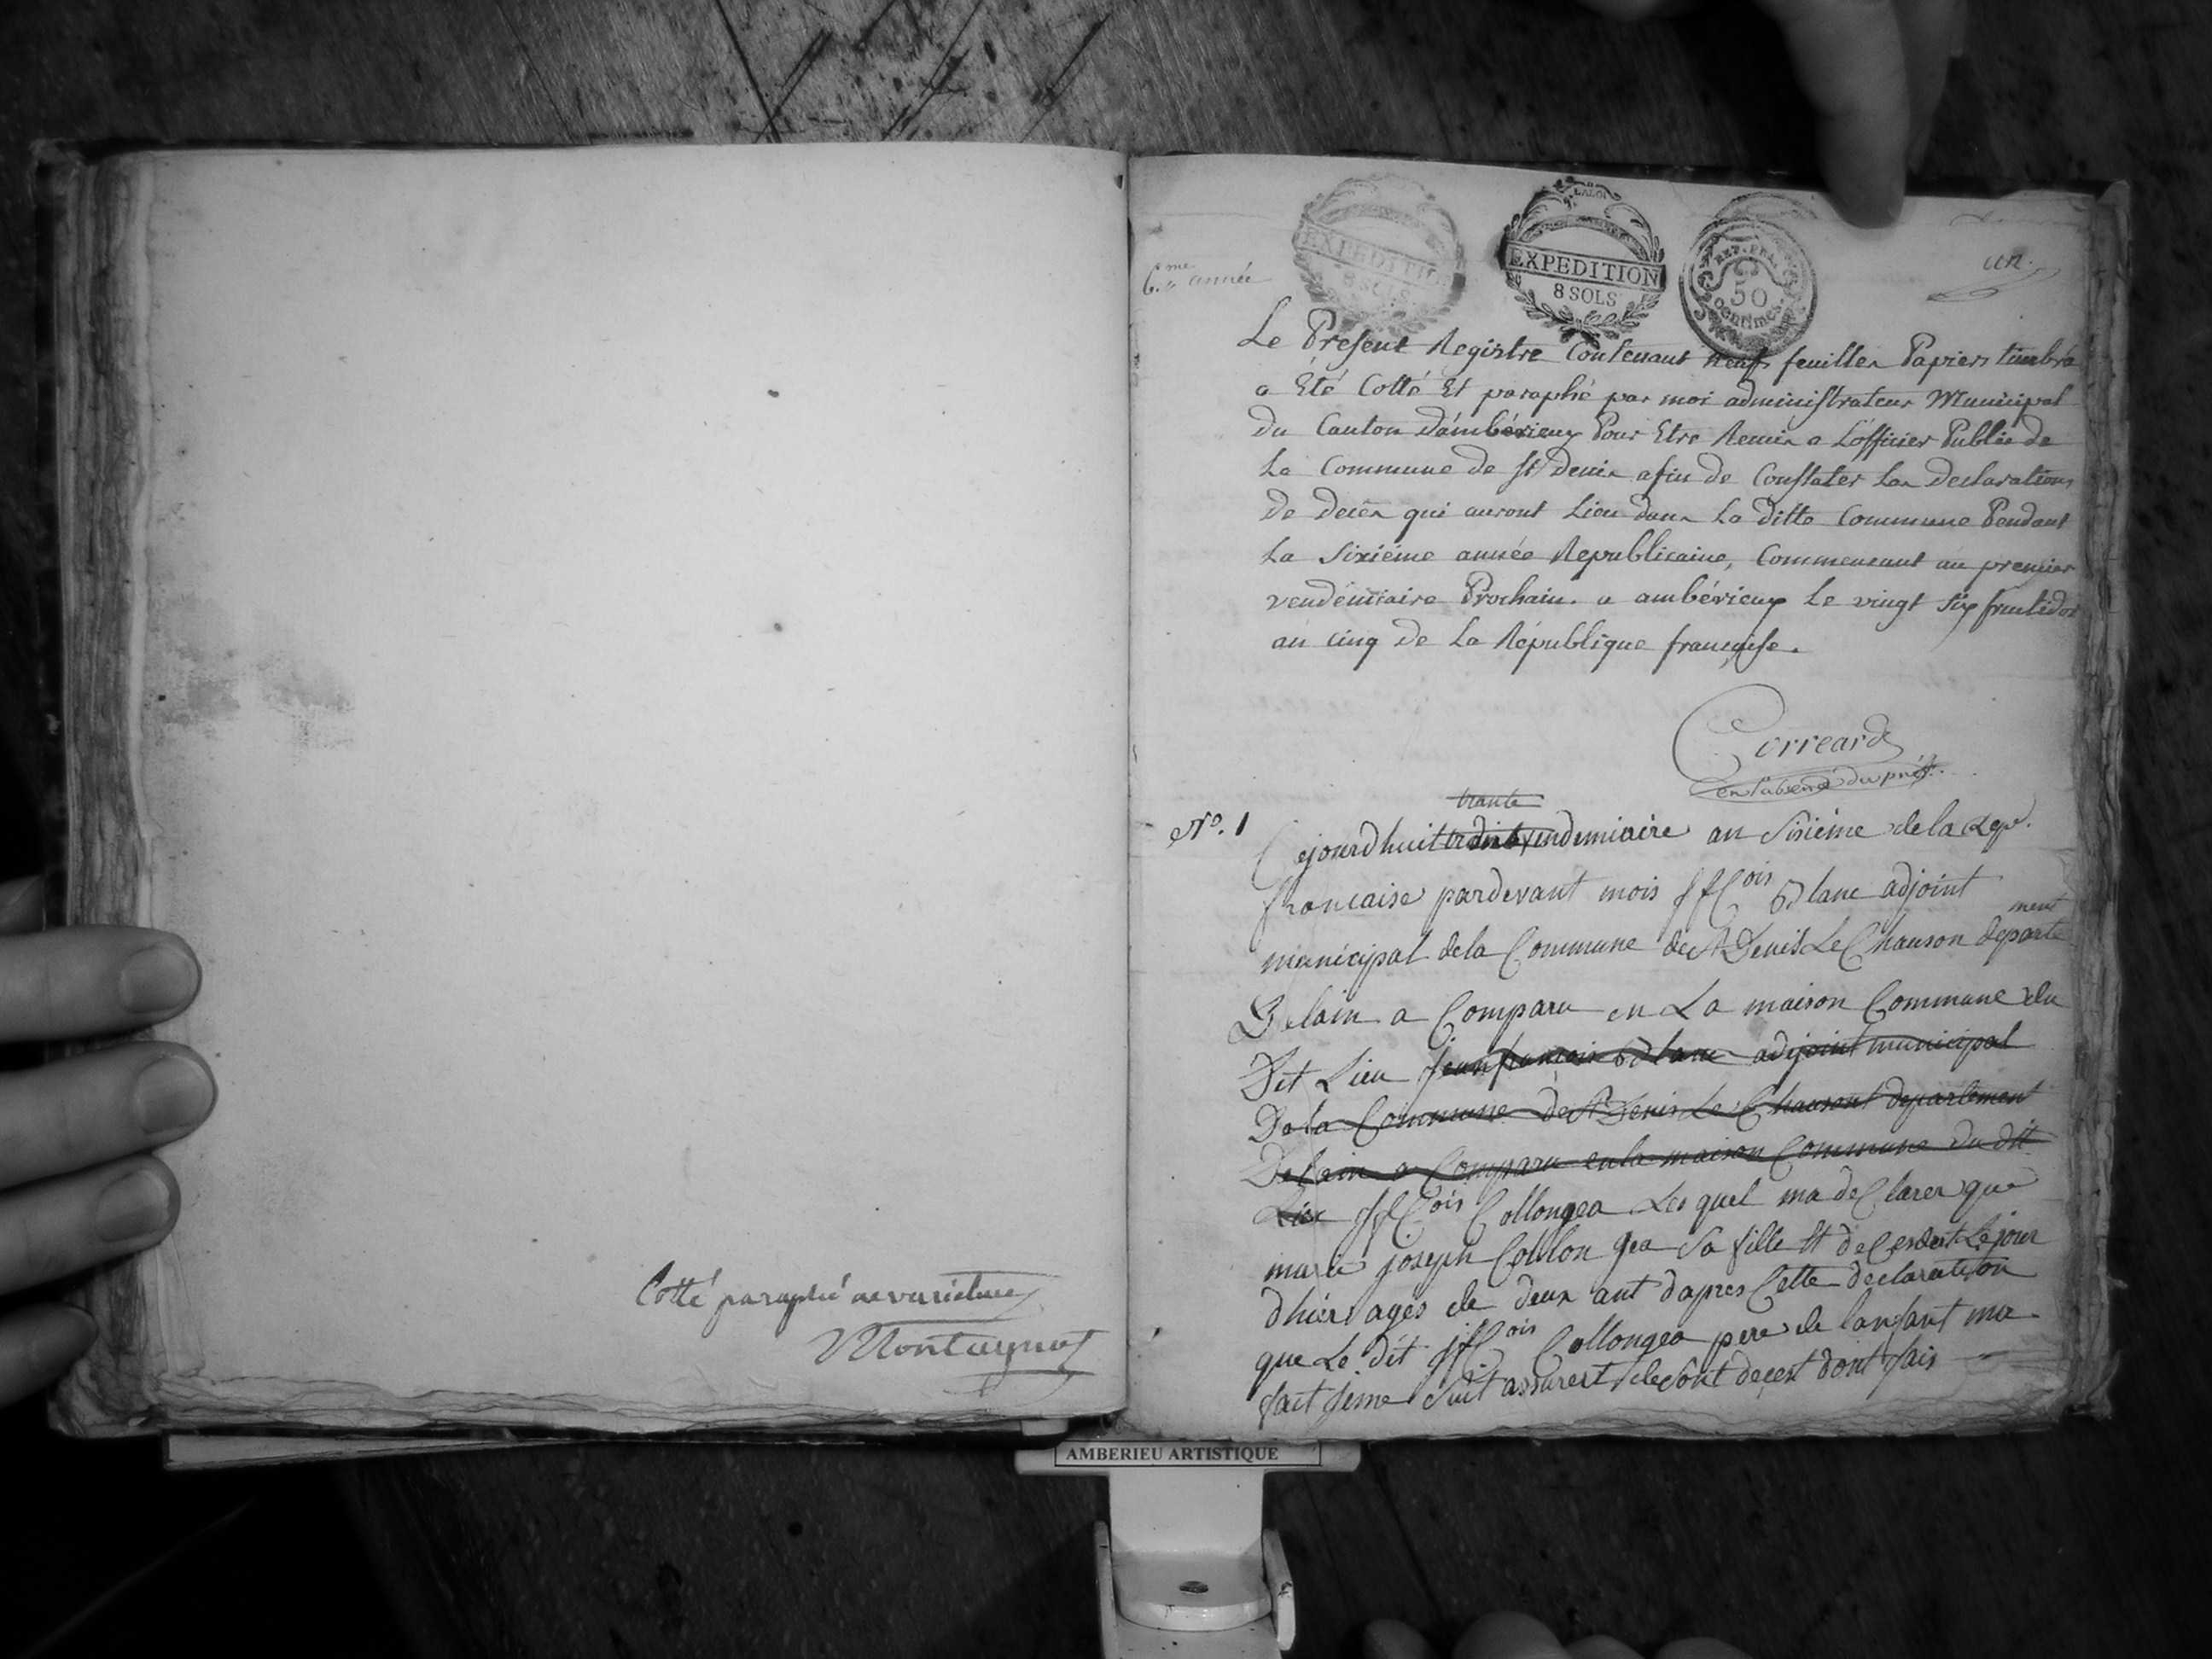 Cotté paraphé nevarietur
Montagnat
6.me année
EXPEDITION
8 SOLS
LA LOI
EXPEDITION
8 SOLS
REP. FRA.
50
Centimes
un.
Le Present Registre Contenant neuf feuilles Papiers timbré
a Eté Cotté Et paraphé par moi administrateur Municipal
du Canton d'ambérieux Pour Etre Remis a L'officier Public de
La Commune de St Denis afin de Constater Les Declarations
de decès qui auront Lieu dans La ditte Commune Pendant
La Sixiéme année Republicaine, Commensant au premier
vendémiaire Prochain. a ambérieux Le vingt six fructidor
an cinq de La République francaise.
Correard
en l'absence du prés.
trante
N°. 1
Cejourdhuit vendemiaire an Sixiéme de la Rep.
francaise pardevant mois Jf Cois Blanc adjoint
municipal de la Commune de St Denis Le Chauson departe
ment
Delain a Comparu en La maison Commune du
Dit Lieu Jean francois Blanc adjoint municipal
De la Commune de St Denis Le Chausont departement
Delain a Comparu en la maison Commune du dit
Lieu Jf Cois Collongea Les quel ma deClarer que
marie joseph Coulon gea Sa fille Et deCedert Le jour
dhier ages de deux ant dapres Cette declaration
que Le dit Jf Cois Collongea pere de lanfant ma
fait Jeme Suit assurert de Sont decest dont Jais